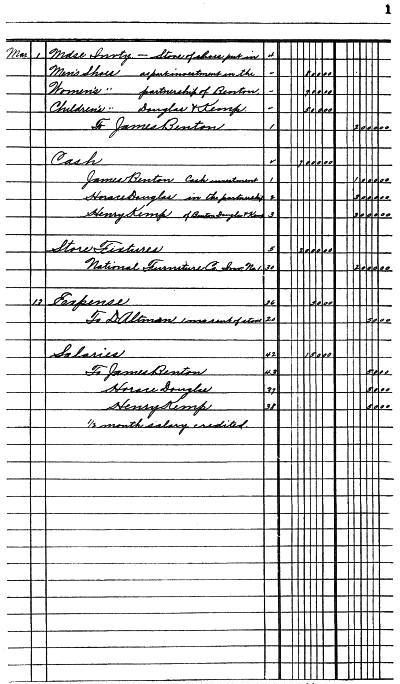 1
Mar 1 Mdse Invty. — Store of shoes, put in 4
Men's Shoes as part investment in the - 80000
Women's " partnership of Benton - 70000
Children's " Douglas & Kemp - 50000
To James Benton 1 200000
Cash 4 700000
James Benton Cash investment 1 100000
Horace Douglas in the partnership 2 300000
Henry Kemp of Benton Douglas & Kemp 3 300000
Store Fixtures 5 200000
National Furniture Co. Inv. No. 1. 30 200000
12 Expense 36 5000
To D. Altman 1 mo rent of store 20 5000
Salaries 42 15000
To James Benton 5000
Horace Douglas 5000
Henry Kemp 38 5000
½ month salary credited.